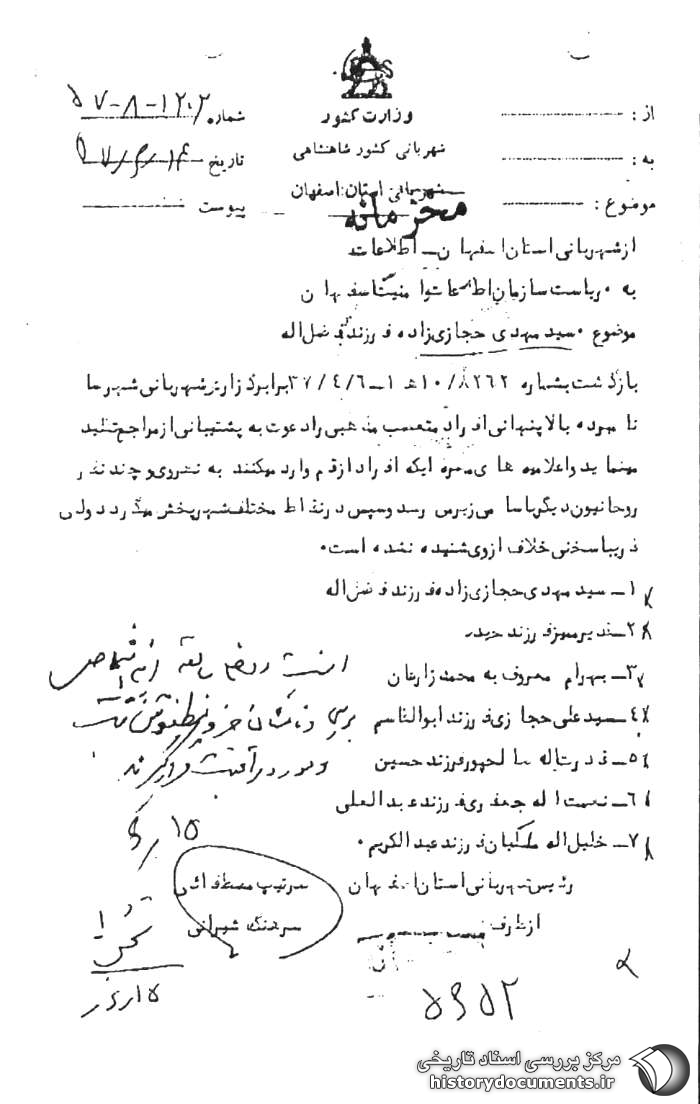 وزارت کشور
شهربانی کشور شاهنشاهی
شهربانی استان اصفهان
شماره ۱۲۰۲-۸-۵۷
تاریخ
پیوست
از :
به :
موضوع :
محرمانه
از شهربانی استان اصفهان ـ اطلاعات
به ریاست سازمان اطلاعات و امنیت اصفهان
موضوع سید مهدی حجازی زاده فرزند فضل اله
بازگشت بشماره ۱۰/۸۲۶۲ ه ۱ـ ۳۷/۴/۶ برابر گزارش شهربانی شهرضا
نامبرده بالا پنهانی افراد متعصب مذهبی را دعوت به پشتیبانی از مراجع تقلید
مینماید و اعلامیه های مضره ایکه افراد از قم وارد میکنند به نظر وی و چند نفر
روحانیون دیگر باسامی زیر میرسد و سپس در نقاط مختلف شهر پخش میگردد ولی
در سخنی خلاف از وی شنیده نشده است.
۱ـ سید مهدی حجازی زاده فرزند فضل اله
۲ـ فرزند حیدر
۳ـ بهرام معروف به محمد زارعان
۴ـ سید علی حجازی فرزند ابوالقاسم
۵ـ قدرت اله صالحپور فرزند حسین
۶ـ نعمت اله جعفری فرزند عبدالعلی
۷ـ خلیل اله ملکیان فرزند عبدالکریم.
رئیس شهربانی استان اصفهان سرتیپ مصطفائی
از طرف سرهنگ شیرانی
۵۹۵۲
مرکز بررسی اسناد تاریخی
historydocuments.ir